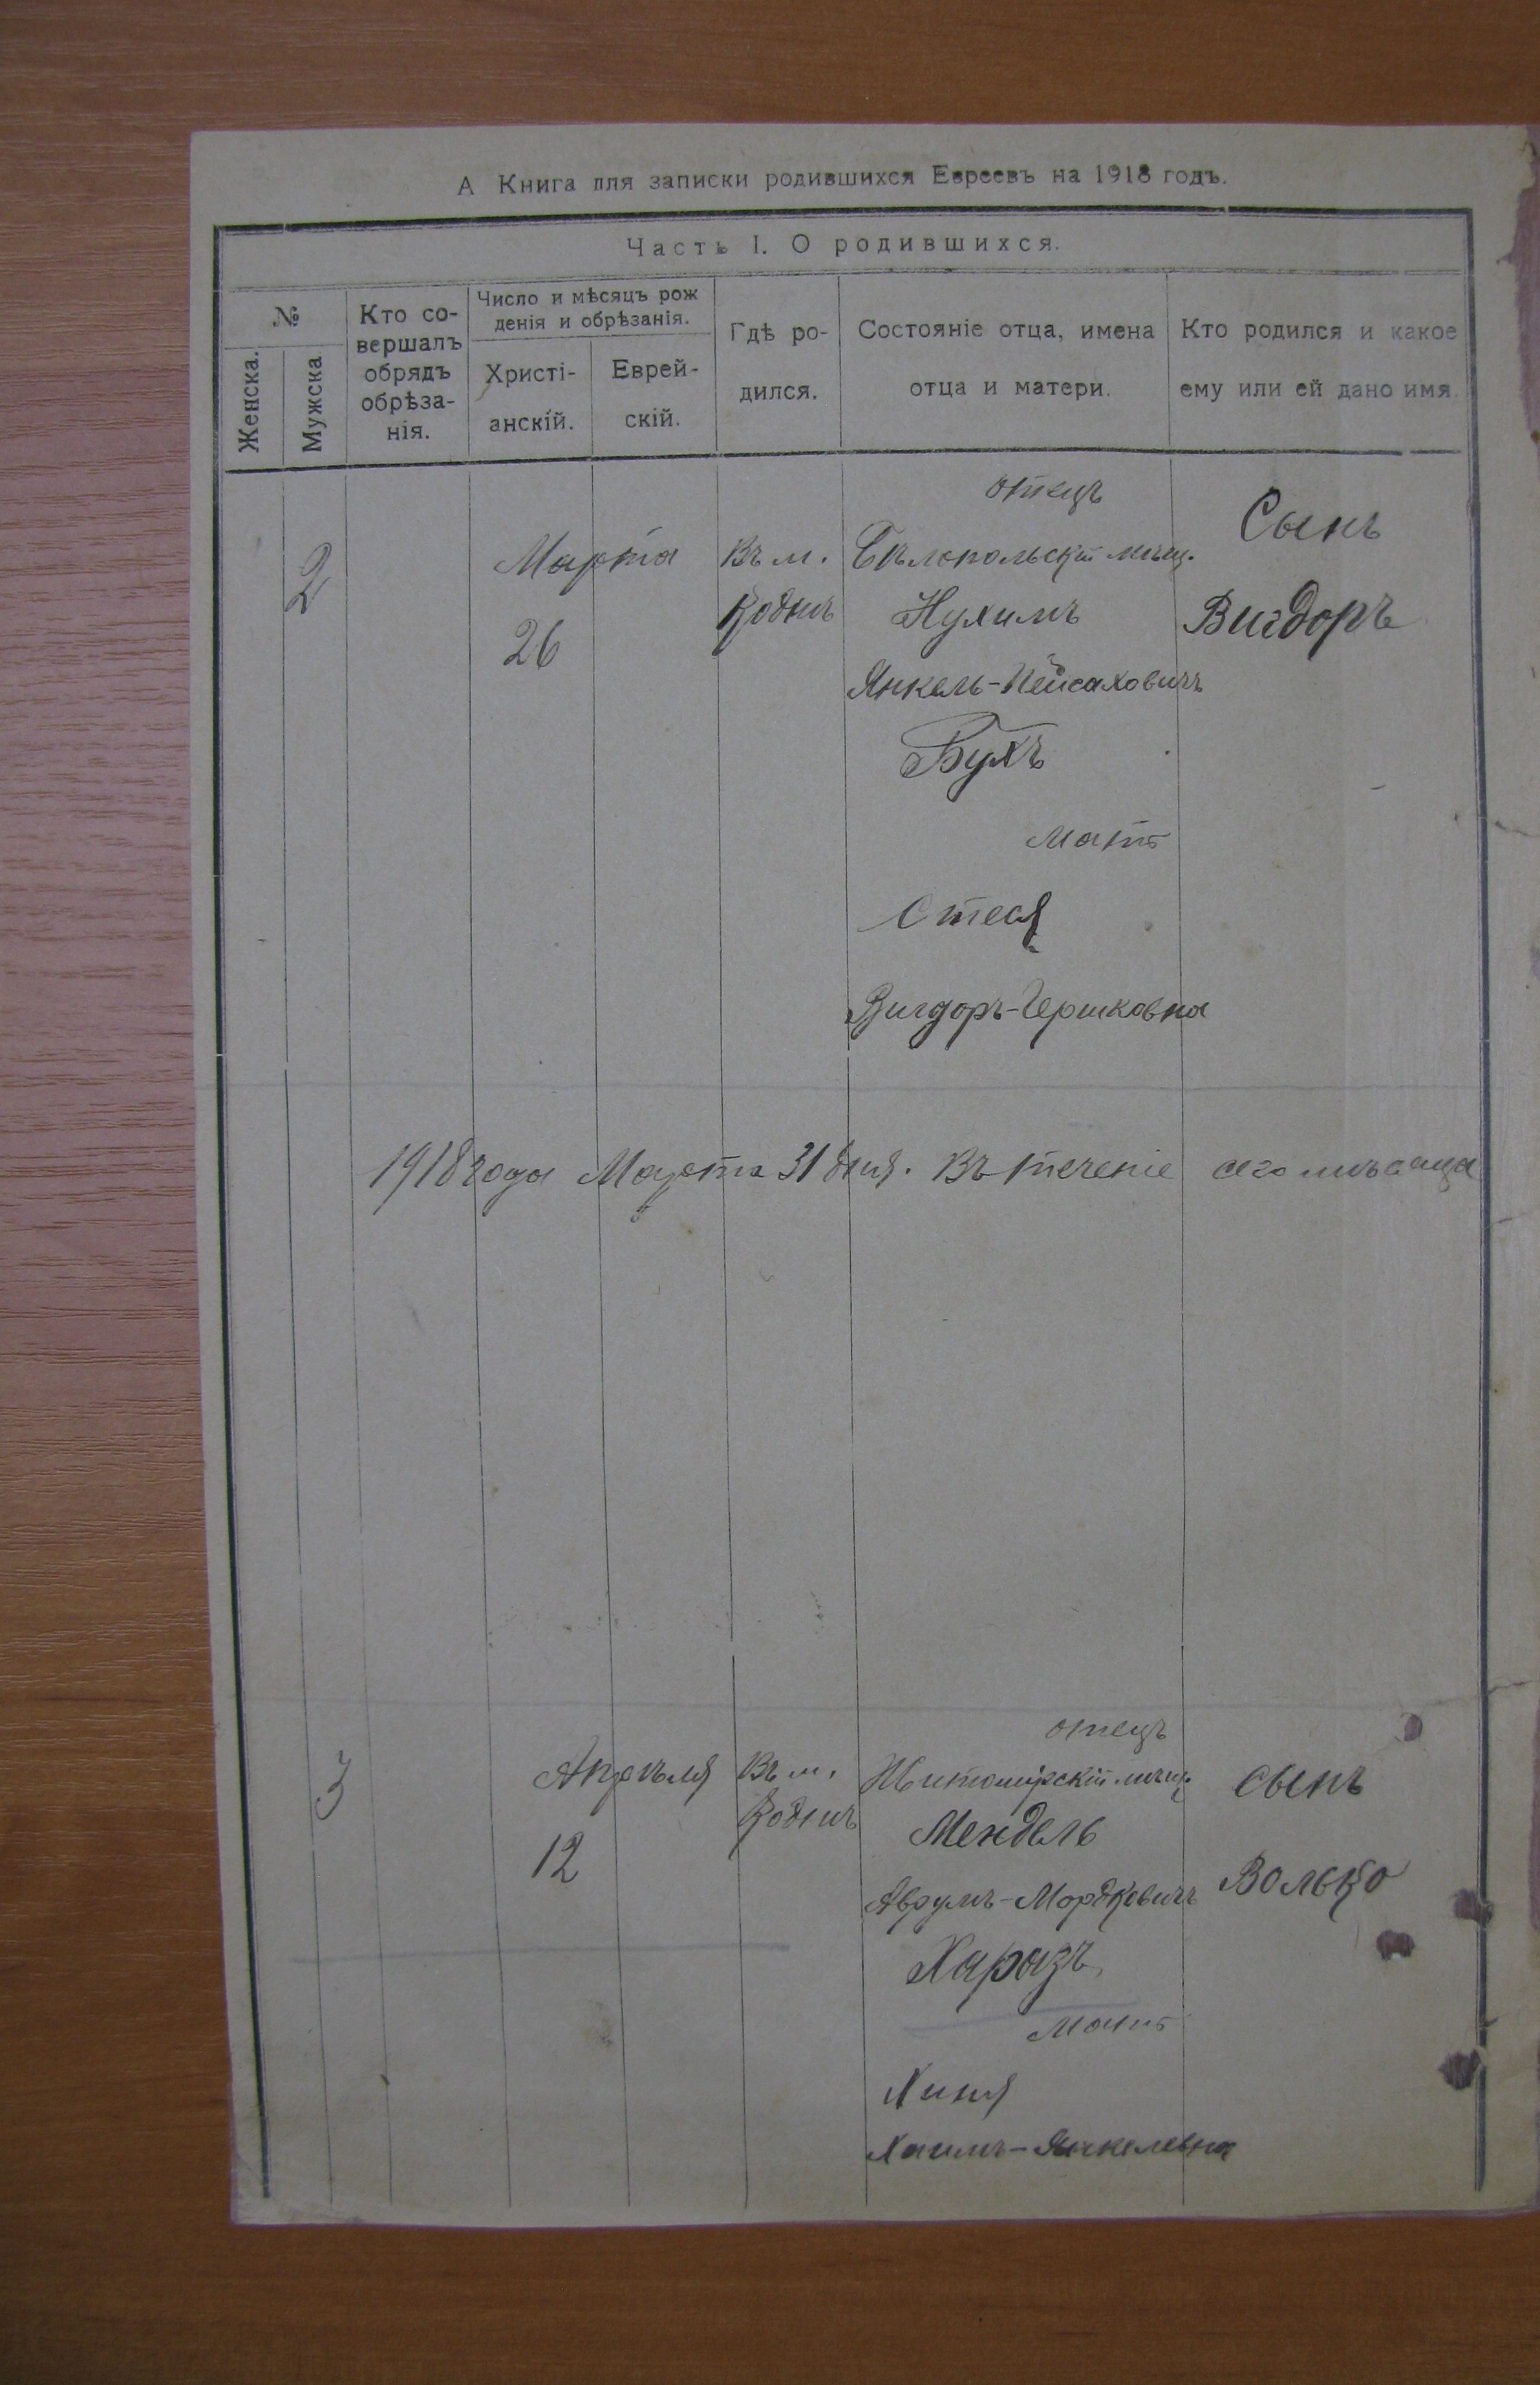 А Книга для записки родившихся Евреевъ на 1918 годъ.
Часть I. О родившихся.
№
Женска.
Мужска
Кто со-
вершалъ
обрядъ
обрѣза-
нія.
Число и мѣсяцъ рож
денія и обрѣзанія.
Христі-
анскій.
Еврей-
скій.
Гдѣ ро-
дился.
Состояніе отца, имена
отца и матери.
Кто родился и какое
ему или ей дано имя.
2
Марта
26
Въ м.
Коднѣ
отецъ
Бѣлопольскій мѣщ.
Нухимъ
Янкель-Пейсаховичъ
Бухъ
мать
Стеся
Вигдоръ-Гершковна
Сынъ
Вигдоръ
1918 года Марта 31 дня. Въ теченіе сего мѣсяца
3
Апрѣля
12
Въ м.
Коднѣ
отецъ
Житомірскій мѣщ.
Мендель
Аврумъ-Мордковичъ
Харазъ
мать
Хиня
Хаимъ-Янкелевна
сынъ
Волько